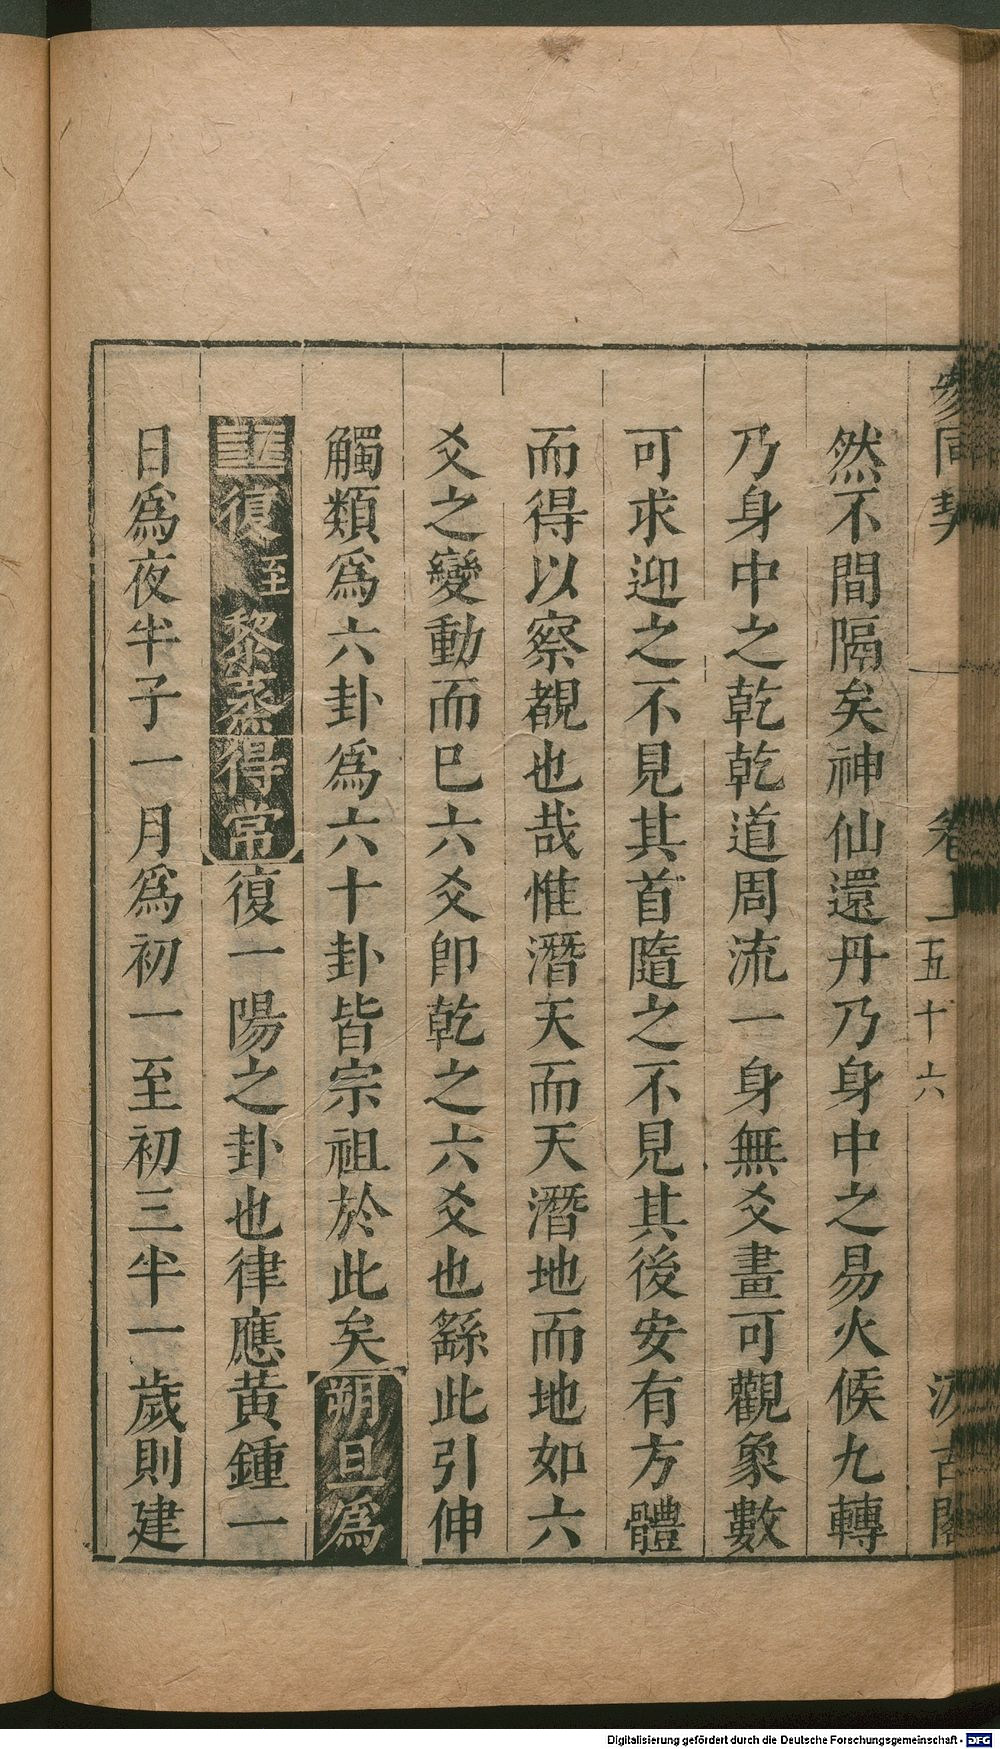 參同契 卷上 五十六 汲古閣
然不間隔矣神仙還丹乃身中之易火候九轉
乃身中之乾乾道周流一身無爻畫可觀象數
可求迎之不見其首隨之不見其後安有方體
而得以察覩也哉惟潛天而天潛地而地如六
爻之變動而巳六爻卽乾之六爻也繇此引伸
觸類爲六卦爲六十卦皆宗祖於此矣朔旦爲
䷗復至黎蒸得常復一陽之卦也律應黃鍾一
日爲夜半子一月爲初一至初三半一歲則建
Digitalisierung gefördert durch die Deutsche Forschungsgemeinschaft - DFG